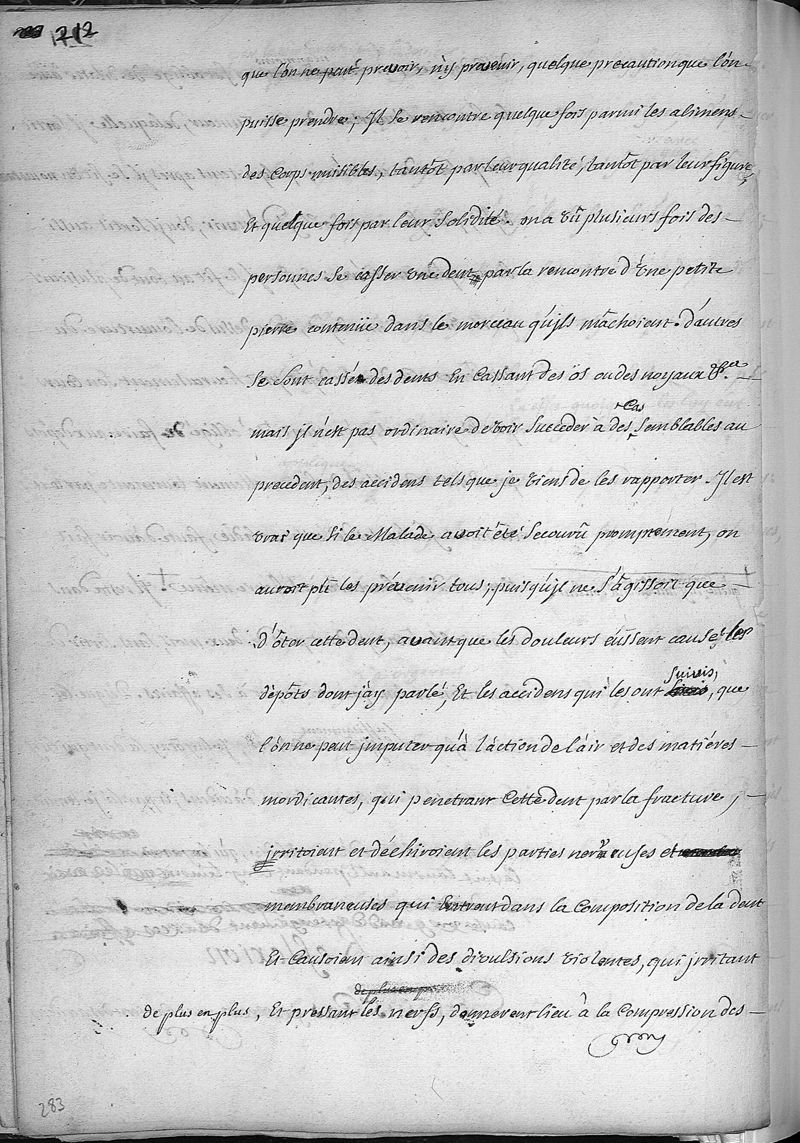 212
que l'on ne peut prevoir, n'y prevenir, quelque precaution que l'on
puisse prendre; Jl se rencontre quelque fois parmi les alimens
des Corps nuisibles, tantôt par leur qualité, tantôt par leur figure,
Et quelque fois par leur Solidité. on a vû plusieurs fois des
personnes se casser une dent par la rencontre d'une petite
pierre contenüe dans le morceau qu'ils mâchoient. d'autres
se sont cassé des dents En Cassant des os ou des noyaux &.ca
Cas
mais jl n'est pas ordinaire de voir Succeder à des Semblables au
precedent, des accidens tels que je viens de les rapporter. Jl est
vrai que Si le Malade avoit été Secourû promptement, on
auroit pû les prévenir tous; puisqu'jl ne S'agissoit que
D'ôter cette dent, avant que les douleurs eussent causé les
suivis,
dépôts dont j'ay parlé, Et les accidens qui les ont, que
l'on ne peut jmputer qu'à l'action de l'air et des matiéres
mordicantes, qui penetrant Cette dent par la fracture,
jrritoient et déchiroient les parties nerveuses et
membraneuses qui Entrent dans la Composition de la dent
Et Causoient ainsi des divulsions violentes, qui jrritant
de plus en plus
de plus en plus, Et pressant les nerfs, donnerent lieu à la Compression des
283